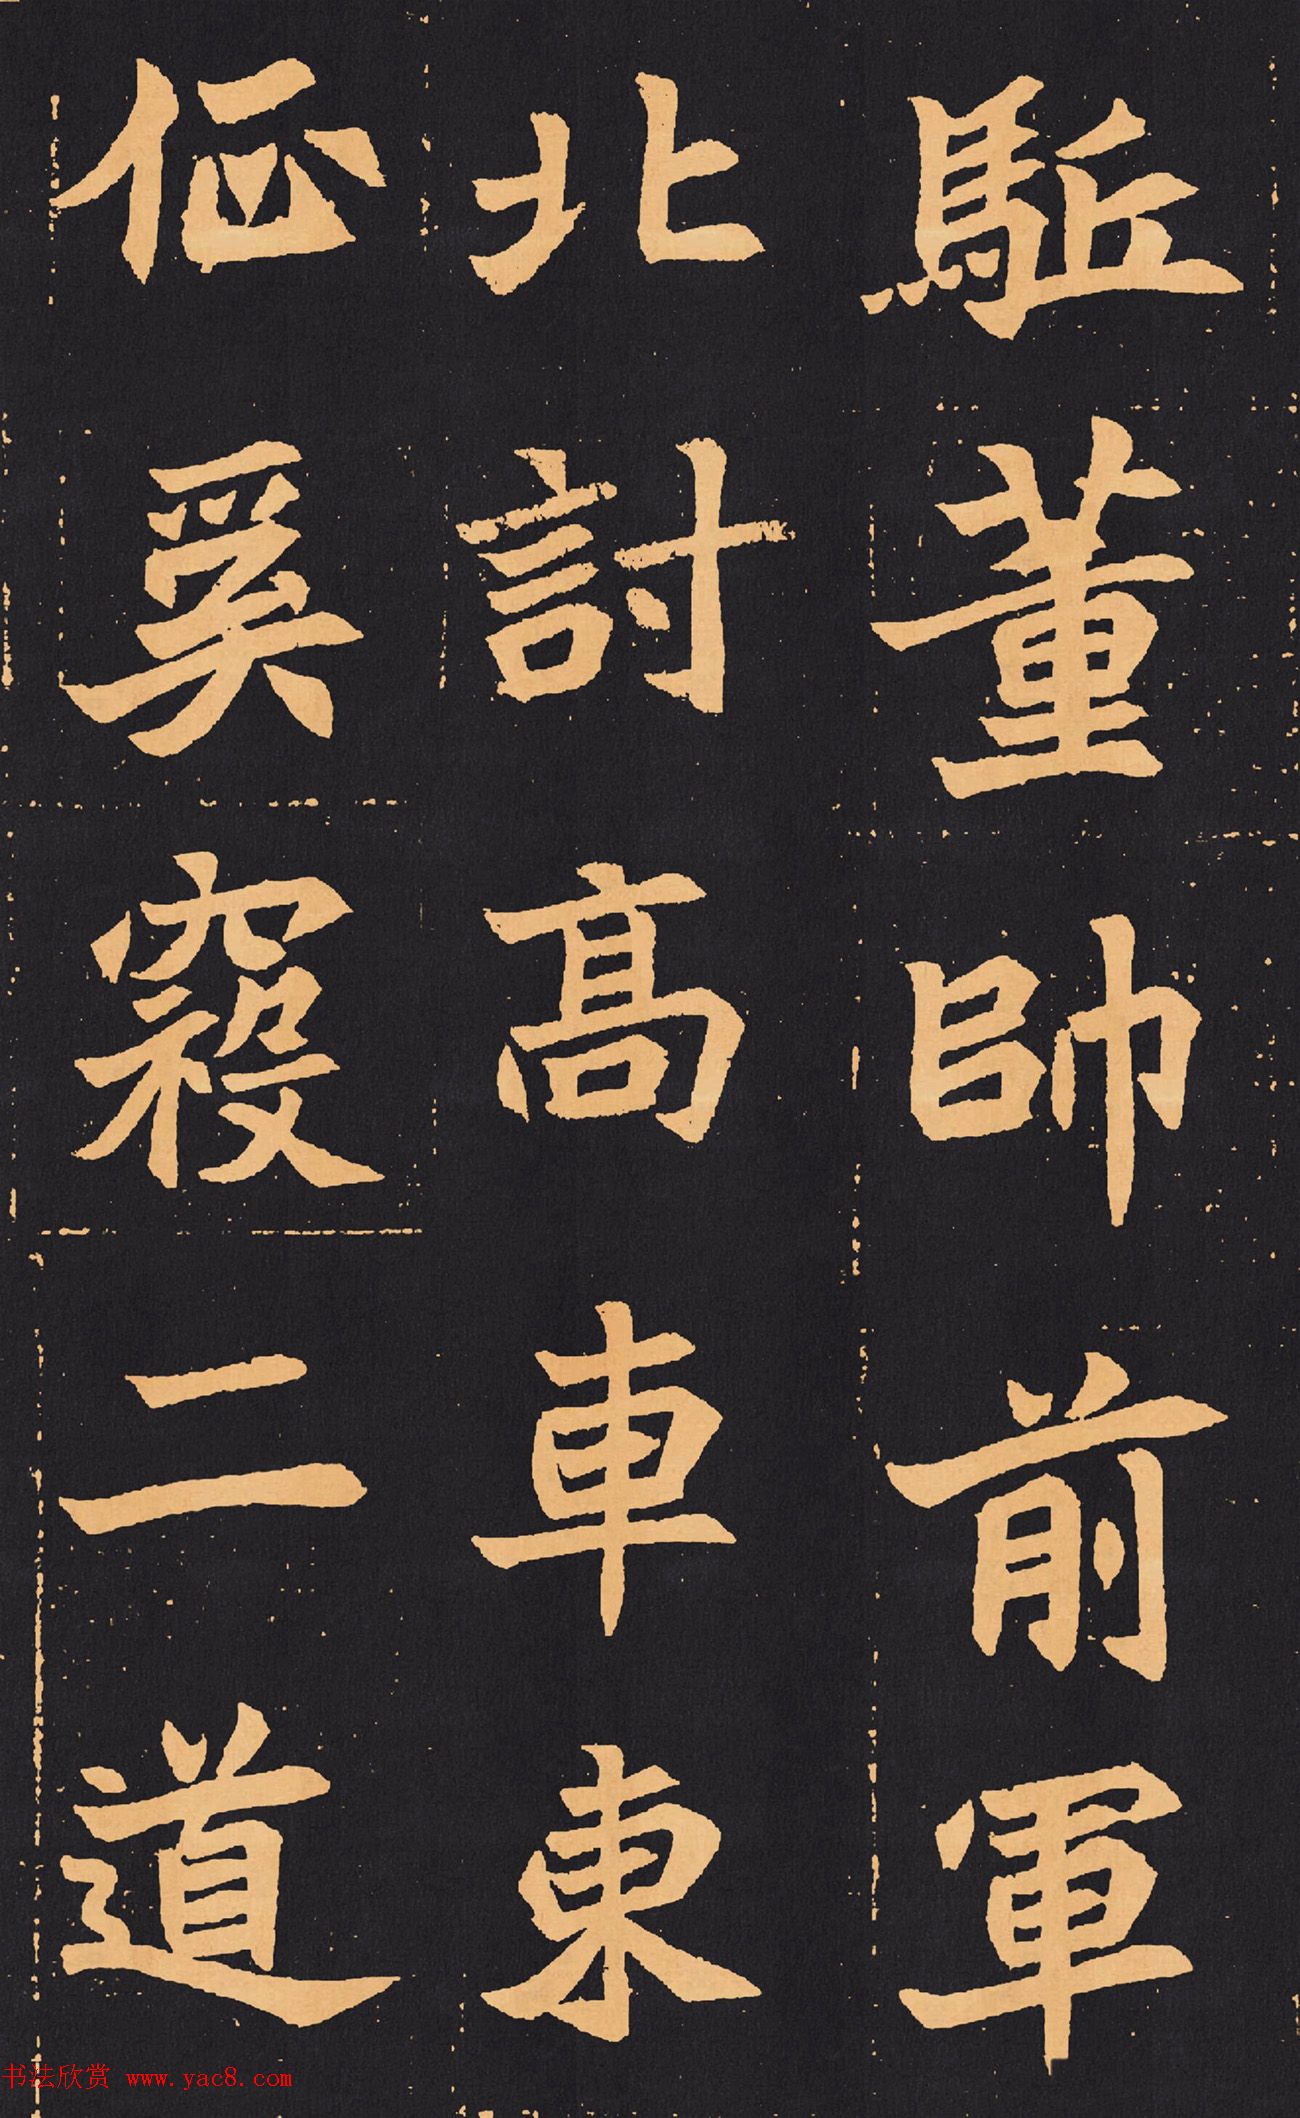 駈董帥前軍
北討高車東
征奚寇二道
书法欣赏 www.yac8.com